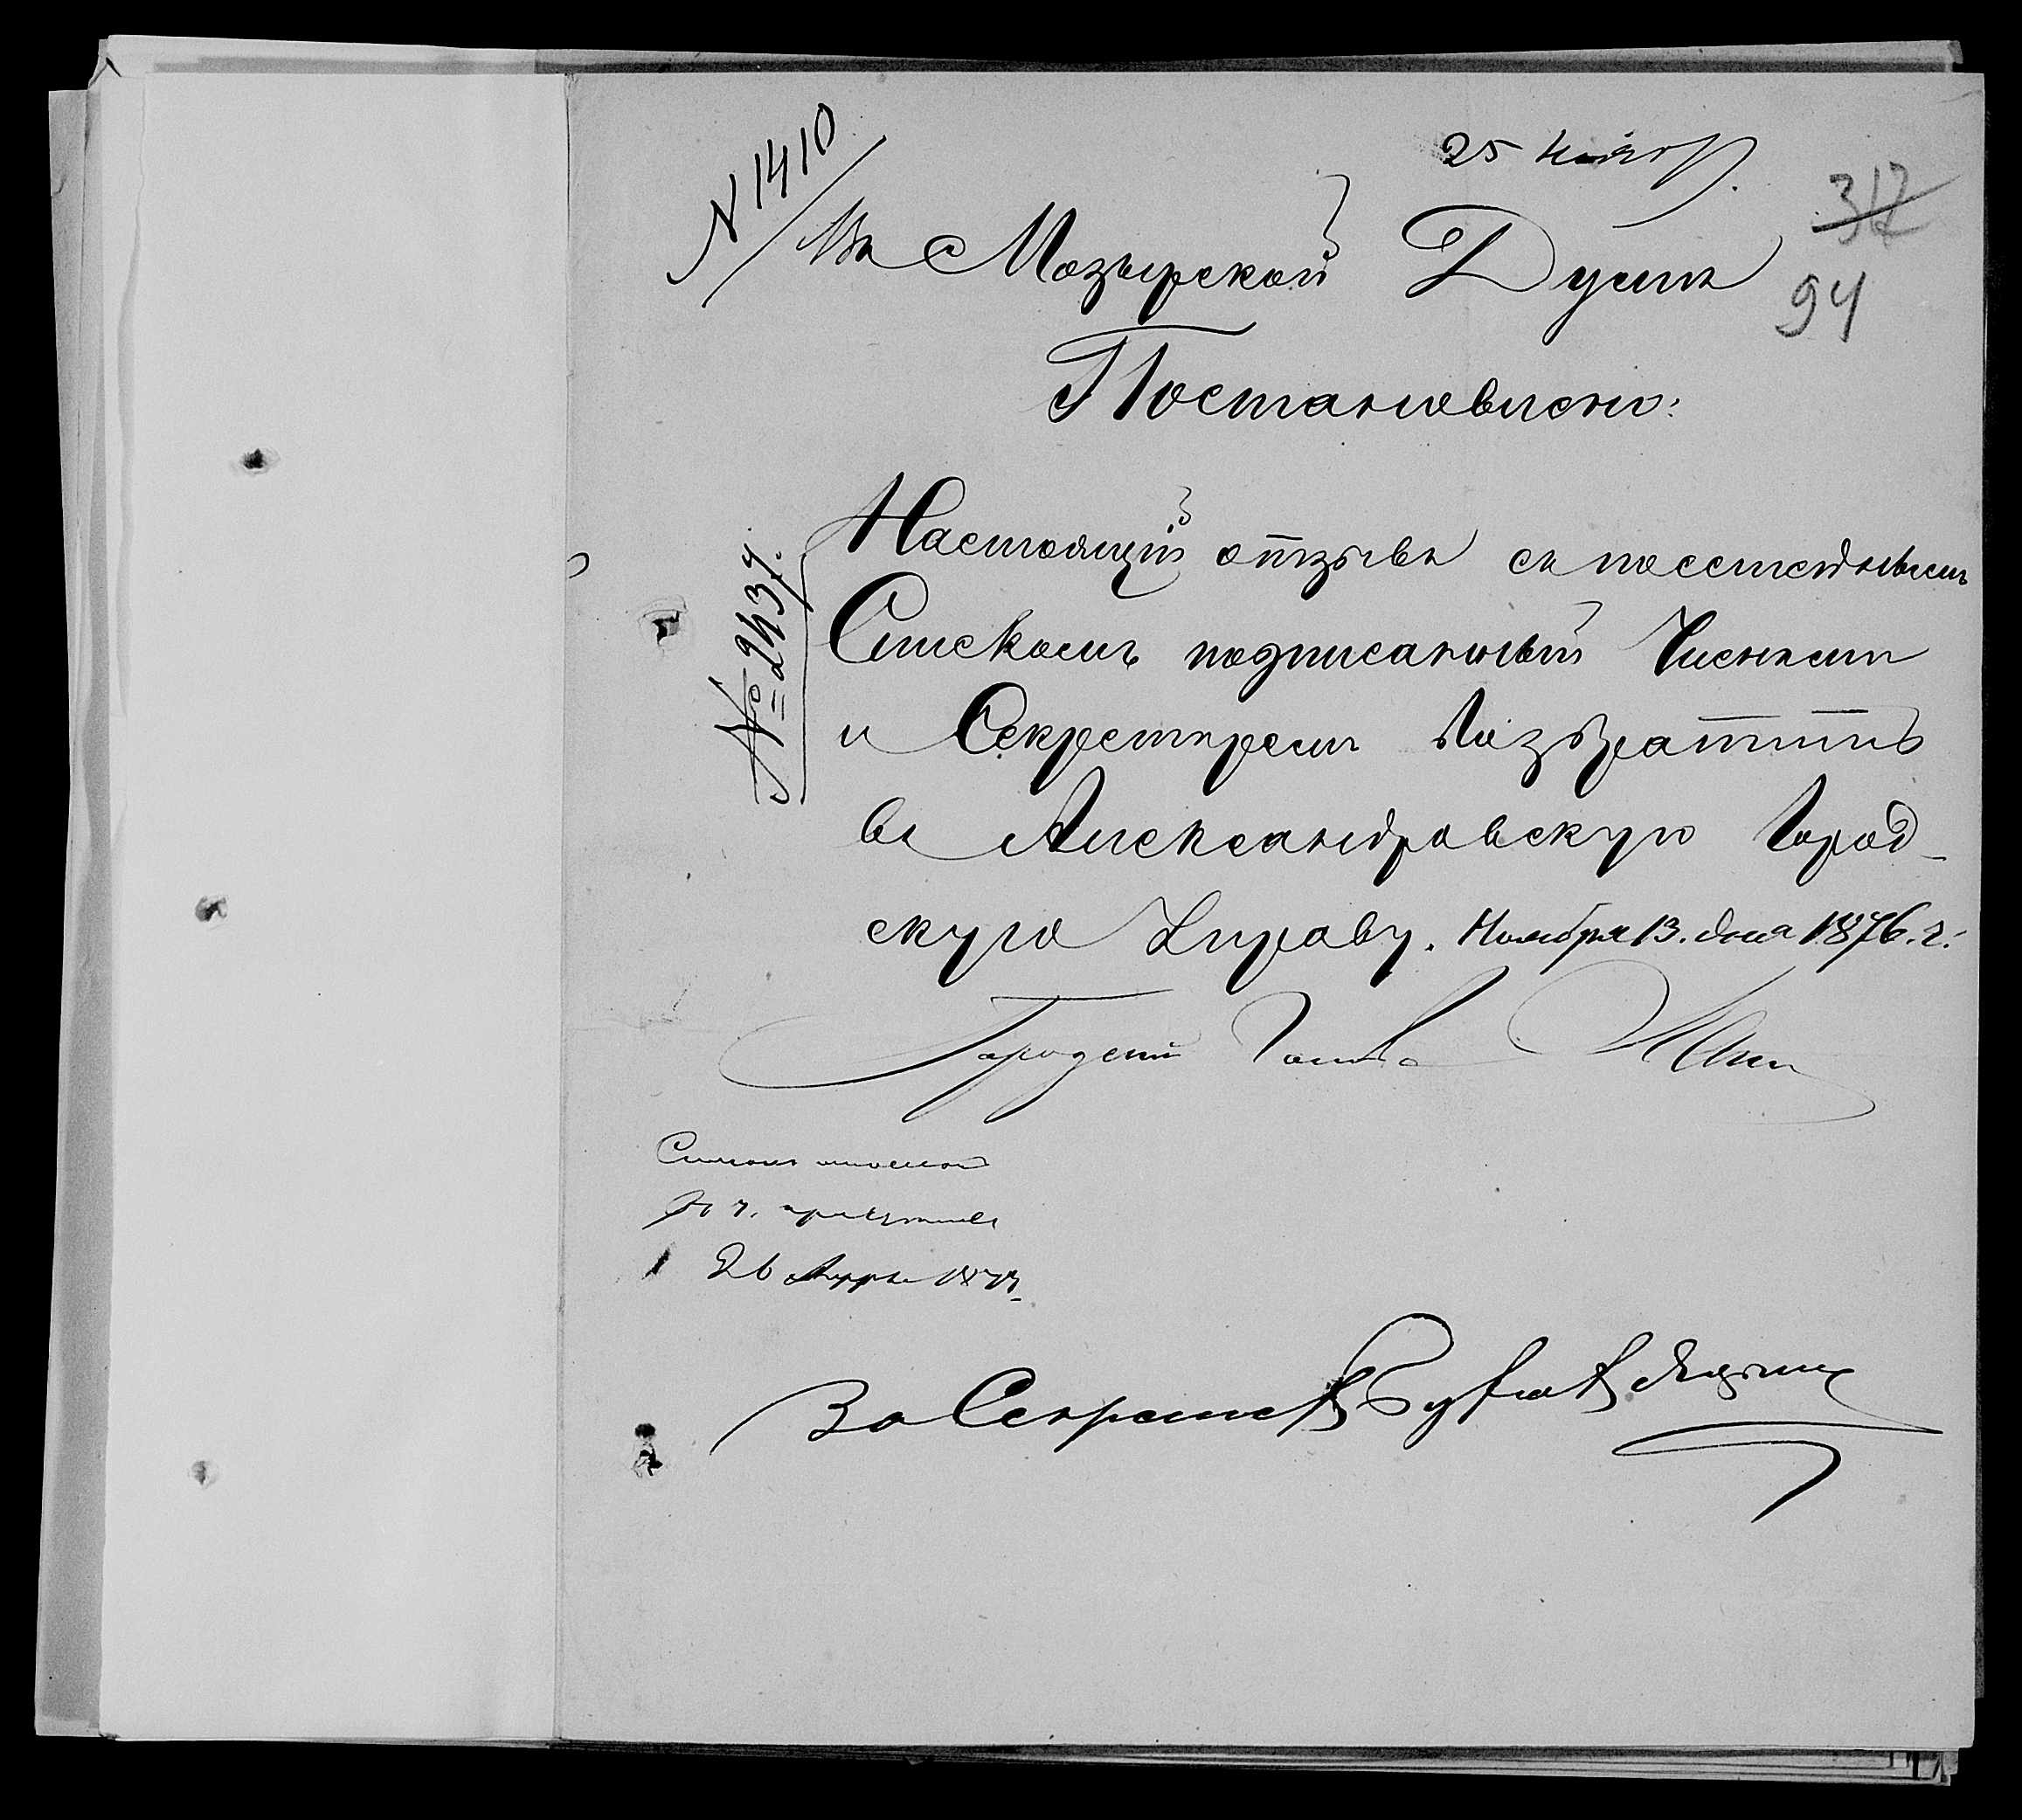 N 1410
25 Ноябр.
317
94
Въ Мозырской Думѣ
Постановлено:
№ 2437.
Настоящій отзывъ съ посемейнымъ
Спискомъ подписанный Членомъ
и Секретаремъ Возвратить
въ Александровскую Город-
скую Управу. Ноября 13. дня 1876. г.
Городской Голова
26 187
За Секретаря